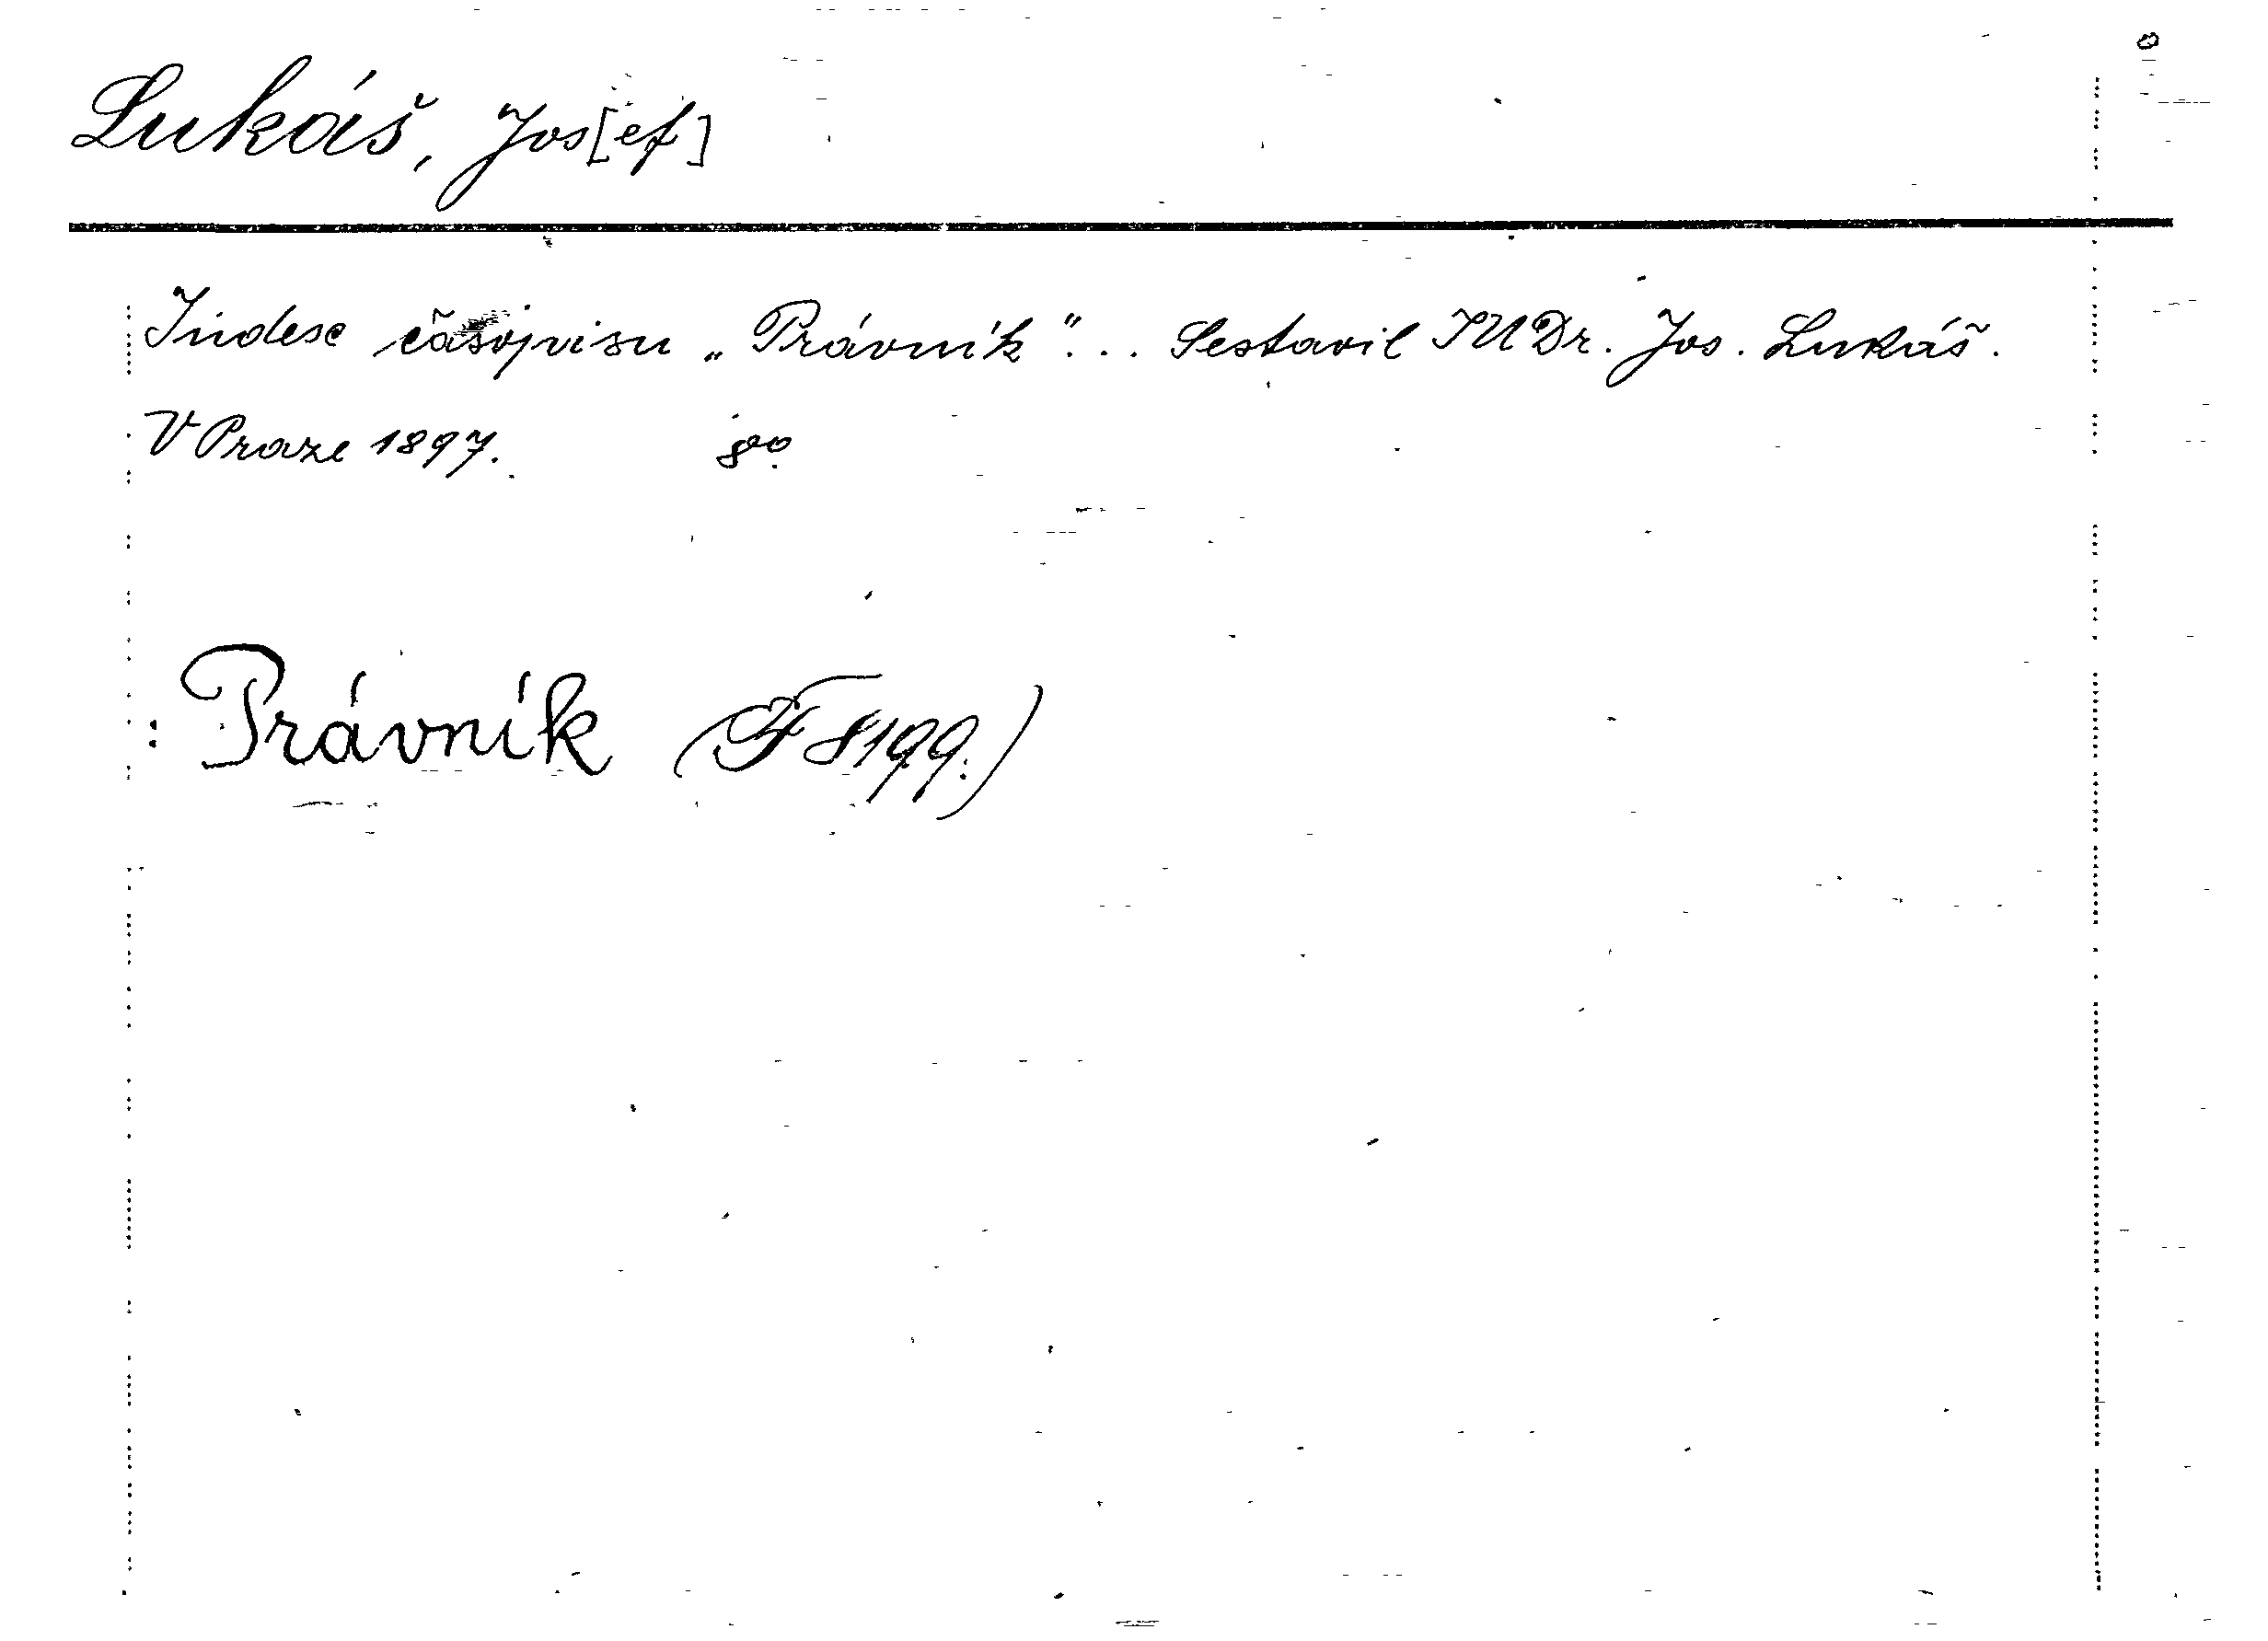 Lukáš, Jos[ef]
Index časopisu „Právník"... Sestavil JUDr. Jos. Lukáš.
V Praze 1897. 8°.
: Právník (F 8199.)